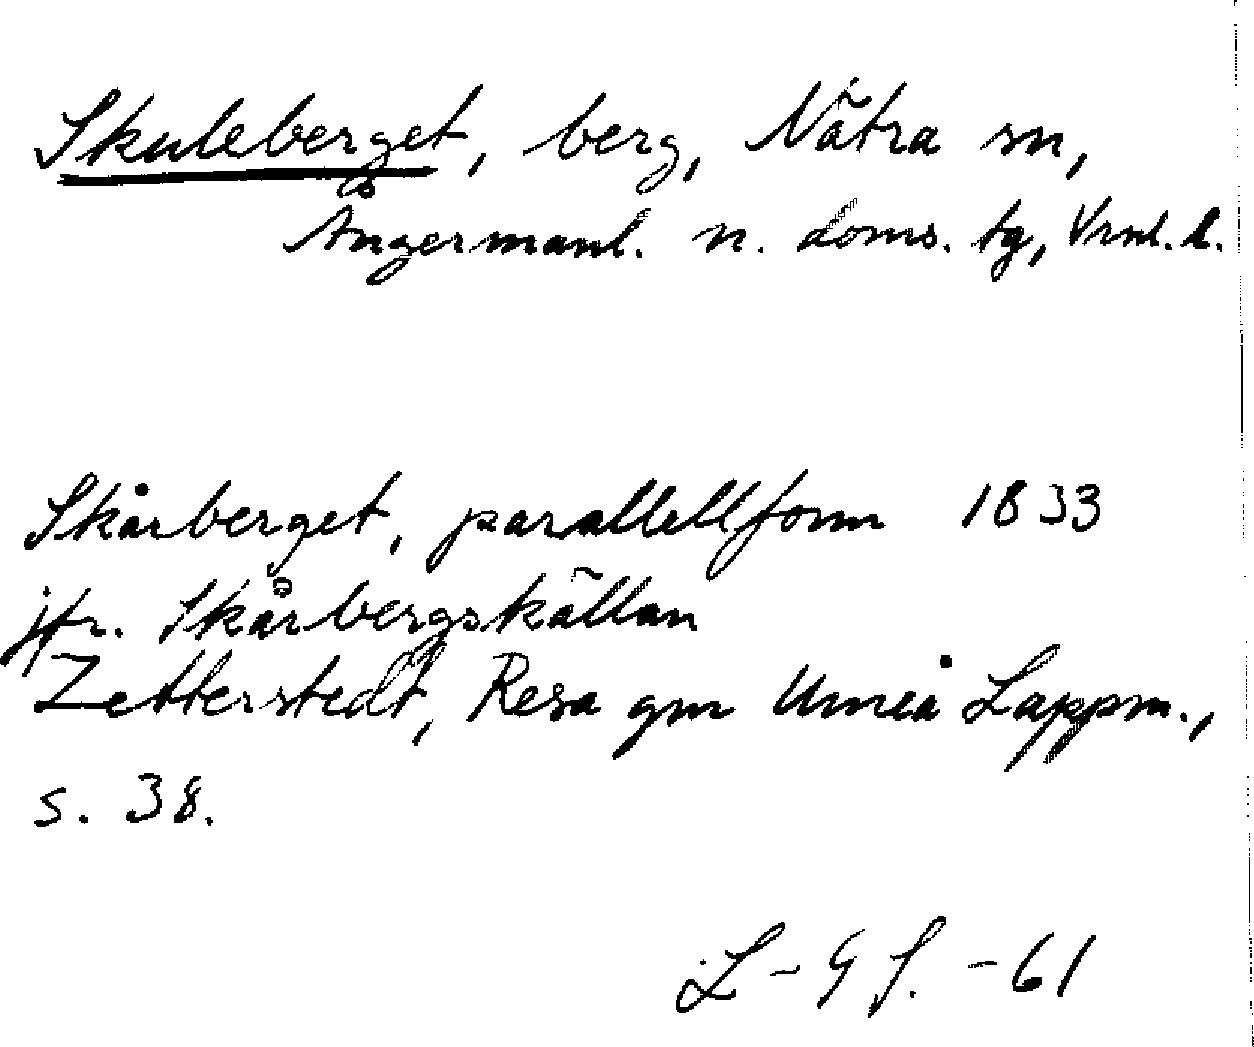 Skuleberget, berg, Nätra sn,
Ångermanl. n. doms. tg, Vrnl. l.
Skårberget, parallellform 1833
jfr. Skårbergskällan
Zetterstedt, Resa gm Umeå Lappm.,
s. 38.
L-G S. -61